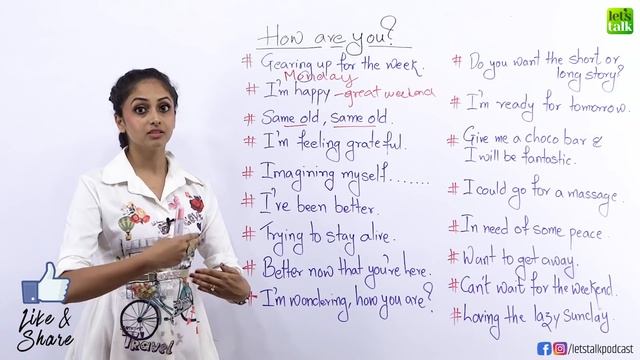 let's
talk
How are you?
# Gearing up for the week.
Monday
# I'm happy - great weekend
# Same old, same old.
# I'm feeling grateful.
# Imagining myself.......
# I've been better.
# Trying to stay alive.
# Better now that you're here.
# I'm wondering, how you are?
# Do you want the short or
long story?
# I'm ready for tomorrow.
# Give me a choco bar &
I will be fantastic.
# I could go for a massage.
# In need of some peace.
# Want to get away.
# Can't wait for the weekend.
# Loving the lazy Sunday.
LOVE
Travel
Like &
Share
/letstalkpodcast